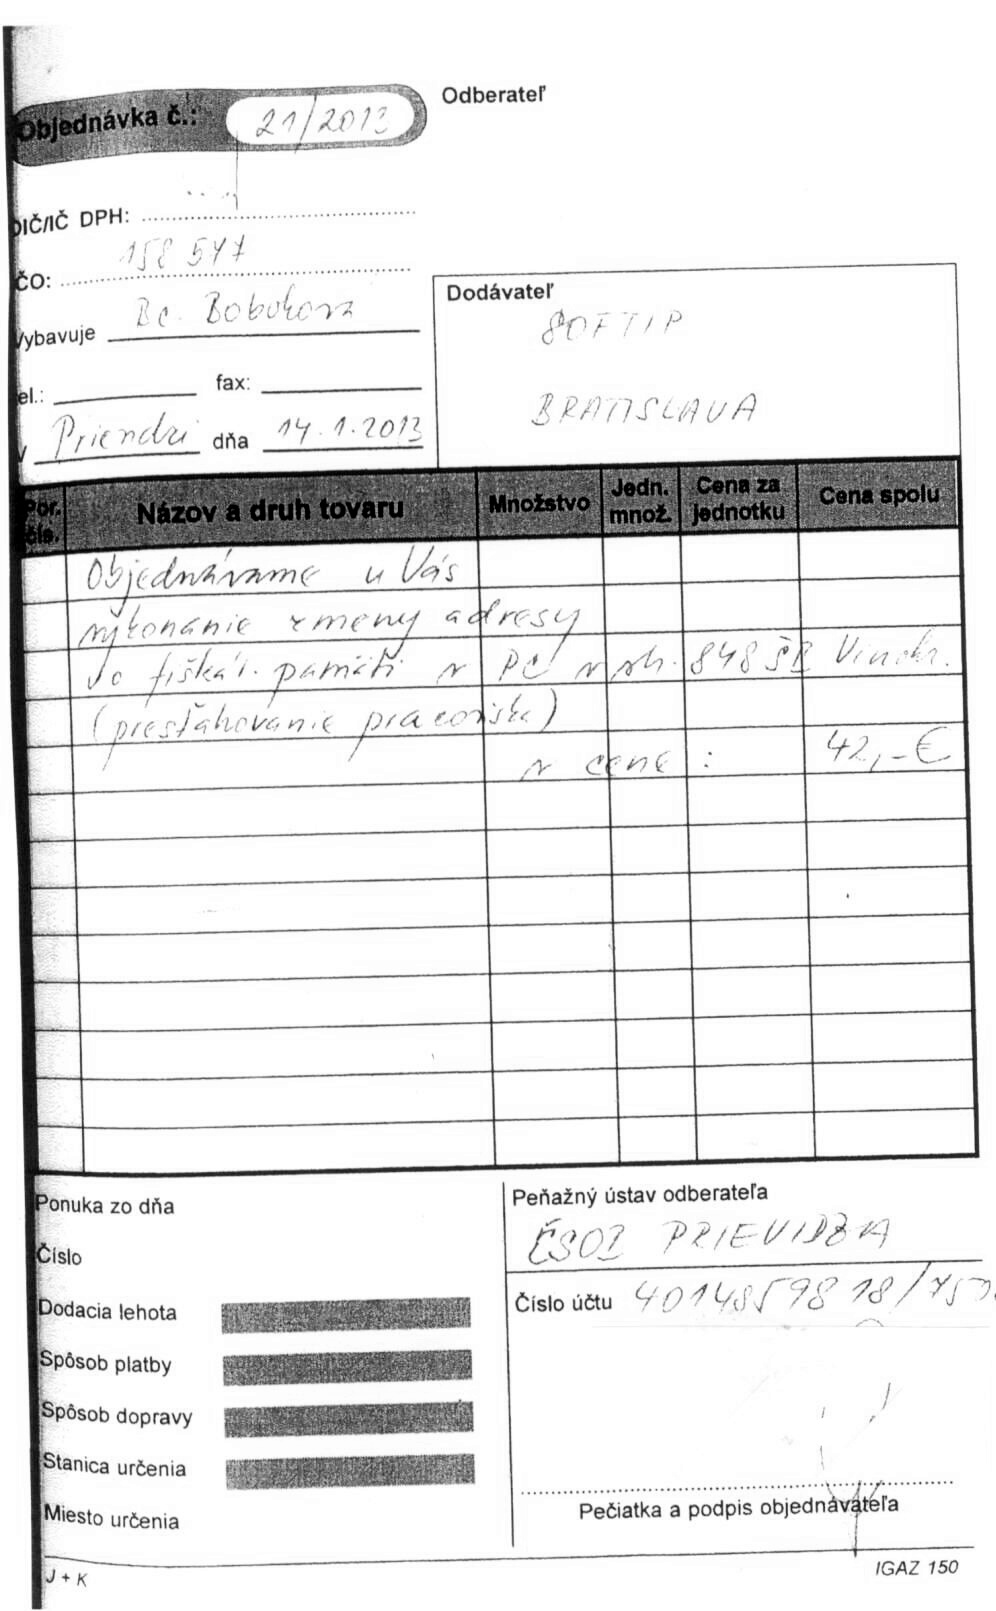 Odberateľ
Objednávka č.: 21/2013
DIČ/IČ DPH:
IČO: 158 547
Vybavuje Bc. Boboková
Dodávateľ
SOFTIP
BRATISLAVA
tel.: fax:
V Prievidzi dňa 14.1.2013
Por. čís. Názov a druh tovaru Množstvo Jedn. množ. Cena za jednotku Cena spolu
Objednávame u Vás
vykonanie zmeny adresy
vo fiškál. pamäti v PC v sh. 848 ŠR Vinohr.
(presťahovanie pracoviska)
v cene : 42,-€
Ponuka zo dňa
Číslo
Dodacia lehota
Spôsob platby
Spôsob dopravy
Stanica určenia
Miesto určenia
Peňažný ústav odberateľa
ČSOB PRIEVIDZA
Číslo účtu 4014859818/750
Pečiatka a podpis objednávateľa
J + K
IGAZ 150